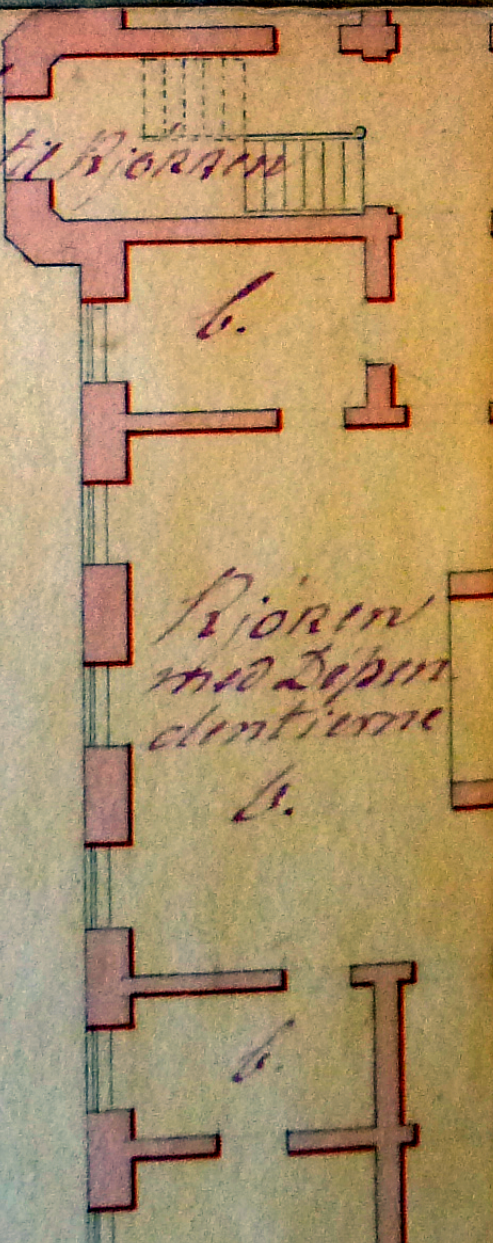 til Kjökken
b.
Kjöken
med Depen
dentierne
b.
b.